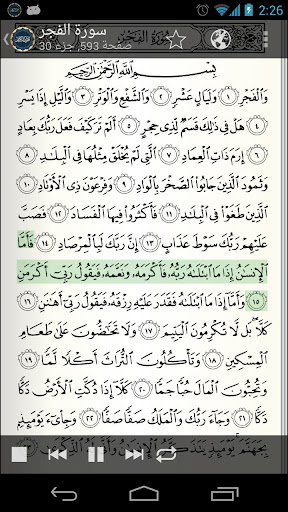 2:26
سورة الفجر
صفحة 593, جزء 30
بِسْمِ اللَّهِ الرَّحْمَٰنِ الرَّحِيمِ
وَالْفَجْرِ ١ وَلَيَالٍ عَشْرٍ ٢ وَالشَّفْعِ وَالْوَتْرِ ٣ وَاللَّيْلِ إِذَا يَسْرِ
٤ هَلْ فِي ذَٰلِكَ قَسَمٌ لِّذِي حِجْرٍ ٥ أَلَمْ تَرَ كَيْفَ فَعَلَ رَبُّكَ بِعَادٍ
٦ إِرَمَ ذَاتِ الْعِمَادِ ٧ الَّتِي لَمْ يُخْلَقْ مِثْلُهَا فِي الْبِلَادِ ٨
وَثَمُودَ الَّذِينَ جَابُوا الصَّخْرَ بِالْوَادِ ٩ وَفِرْعَوْنَ ذِي الْأَوْتَادِ ١٠
الَّذِينَ طَغَوْا فِي الْبِلَادِ ١١ فَأَكْثَرُوا فِيهَا الْفَسَادَ ١٢ فَصَبَّ
عَلَيْهِمْ رَبُّكَ سَوْطَ عَذَابٍ ١٣ إِنَّ رَبَّكَ لَبِالْمِرْصَادِ ١٤ فَأَمَّا
الْإِنسَانُ إِذَا مَا ابْتَلَاهُ رَبُّهُ فَأَكْرَمَهُ وَنَعَّمَهُ فَيَقُولُ رَبِّي أَكْرَمَنِ
١٥ وَأَمَّا إِذَا مَا ابْتَلَاهُ فَقَدَرَ عَلَيْهِ رِزْقَهُ فَيَقُولُ رَبِّي أَهَانَنِ ١٦
كَلَّا بَل لَّا تُكْرِمُونَ الْيَتِيمَ ١٧ وَلَا تَحَاضُّونَ عَلَىٰ طَعَامِ
الْمِسْكِينِ ١٨ وَتَأْكُلُونَ التُّرَاثَ أَكْلًا لَّمًّا ١٩
وَتُحِبُّونَ الْمَالَ حُبًّا جَمًّا ٢٠ كَلَّا إِذَا دُكَّتِ الْأَرْضُ دَكًّا
دَكًّا ٢١ وَجَاءَ رَبُّكَ وَالْمَلَكُ صَفًّا صَفًّا ٢٢ وَجِيءَ يَوْمَئِذٍ
بِجَهَنَّمَ يَوْمَئِذٍ يَتَذَكَّرُ الْإِنسَانُ وَأَنَّىٰ لَهُ الذِّكْرَىٰ